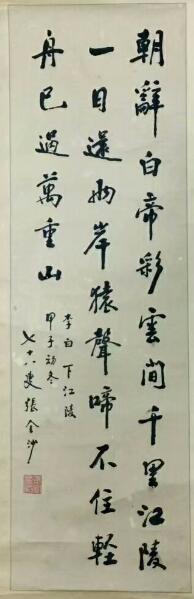 朝辭白帝彩雲間千里江陵
一日還兩岸猿聲啼不住輕
舟已過萬重山
李白下江陵
甲子初冬
叟張金沙